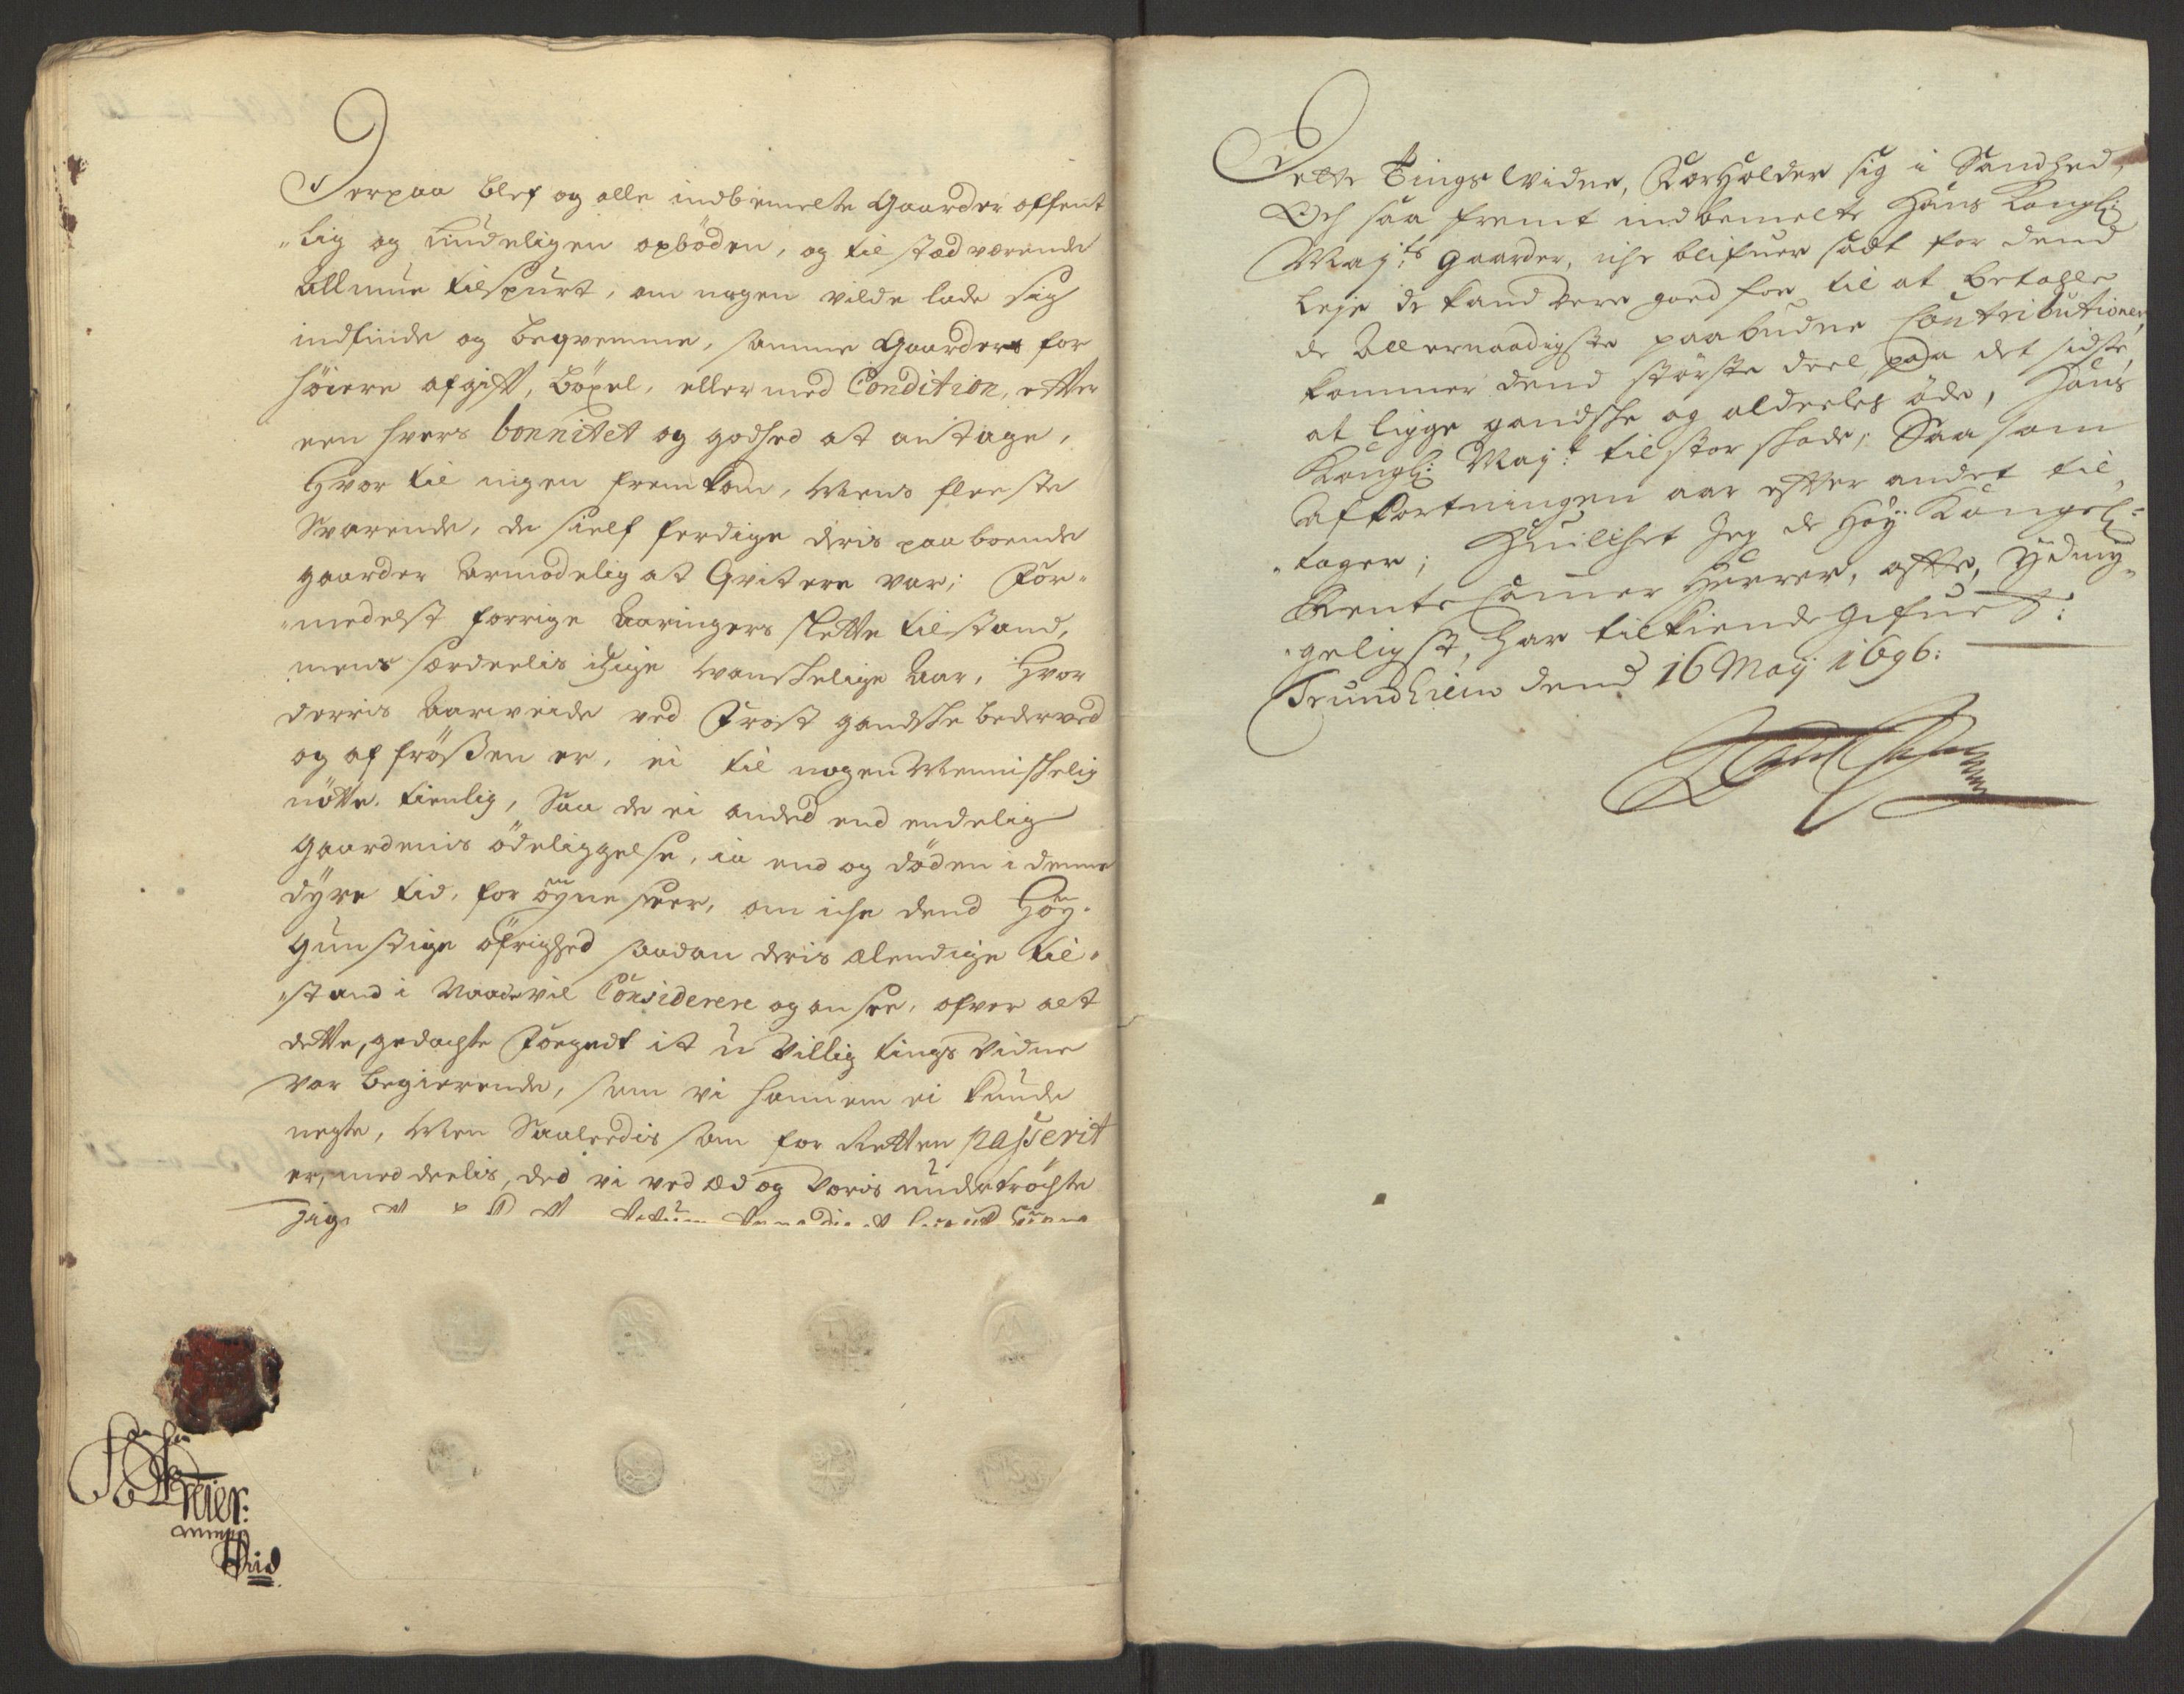 Derpaa blef og alle indbemelte Gaarder offent
"lig og lÿdeligen opböden, og til stæd værende
Allmue tilspurt, om nogen vilde lade sig
indfinde og beqvemme, samme Gaarder for
höiere afgift, böxel, eller med Condition, efter
een hvers bonnitet og godhed at antage,
Hvor til ingen fremkom, Mens fleeste
Svarende, de sielf ferdige deris paa boende
gaarder Armodelig at Qvitere var; For-
"medelst forrige Aaringers slette tilstand,
mens særdeelis itzige vanskelige Aar, Hvor
derris Aarveide ved Frost gandske bederved
og af frößen er, ei til nogen Menniskelig
nötte tienlig, Saa de ei anded end endelig
Gaardenis ödeliggelse, ia end og döden i denne
dÿre tid, for öÿne seer, om iche dend Höÿ-
gunstige öfrighed saadan deris elendige til-
"stand i Naade vil Considerere og ansee, ofver alt
dette, gedachte Foegedt it u Villig tings Vidne
var begierende, som vi hannem ei kunde
negte, Men Saaleedis som for Retten passerit
er, meddeelis, ded vi ved æd og Voris undertröchte
Dette Tings Vidne, Forholder sig i Sandhed,
Och saa fremt indbemelte Hans Kongl:
Maj:ts Gaarder, iche blifuer sadt for dend
Leje de kand vere goed for til at betalle
de Allernaadigste paabudne Contributioner,
kommer dend störste deel, paa det sidste,
at ligge gandske og aldeeles öde, Hans
Kongl: Maj:t til stor skade, Saa som
Afkortningen aar efter andet til,
"tager; Huilchet Jeg de Höÿ Kongel:
Rente Camer Herrer, ÿdmÿ-
"geligst, har tilkiende gifuet:
Trundhiem dend 16 Maÿ 1696: